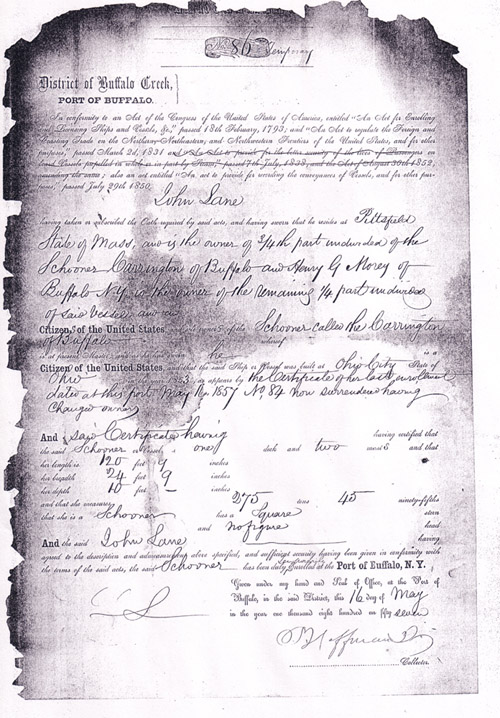 No. 86 Temporary
District of Buffalo Creek,
PORT OF BUFFALO.
In conformity to an Act of the Congress of the United States of America, entitled "An Act for Enrolling
and Licensing Ships and Vessels, &c," passed 18th February, 1793; and "An Act to regulate the Foreign and
Coasting Trade on the Northern, Northeastern, and Northwestern Frontiers of the United States, and for other
purposes," passed March 2d, 1831
also an act entitled "An act to provide for recording the conveyances of Vessels, and for other pur-
poses," passed July 29th 1850,
John Lane
having taken or subscribed the Oath required by said acts, and having sworn that he resides at Pittsfield
State of Mass, and is the owner of 3/4th part undivided of the
Schooner Carrington of Buffalo and Henry G Morey of
Buffalo N.Y. is the owner of the remaining 1/4 part undivided
of said vessel
Citizens of the United States, Schooner called the Carrington
of Buffalo whereof
is at present Master, and as he has sworn he is a
Citizen of the United States, and that the said Ship or Vessel was built at Ohio City State of
Ohio as appears by the Certificate of her last enrolment
dated at this port May 1857 No. 84 now surrendered having
Changed owner
And said Certificate having having certified that
the said Schooner or Vessel, has one deck and two masts and that
her length is 120 feet 9 inches
her breadth 24 feet 9 inches
her depth 10 feet – inches
and that she measures 275 tons 45 ninety-fifths
that she is a Schooner has a Square stern
and no figure head.
And the said John Lane having
agreed to the description and admeasurement above specified, and sufficient security having been given in conformity with
the terms of the said acts, the said Schooner has been duly Enrolled at the Port of Buffalo, N. Y.
Given under my hand and Seal of Office, at the Port of
Buffalo, in the said District, this 16 day of May
in the year one thousand eight hundred and fifty seven
Collector.